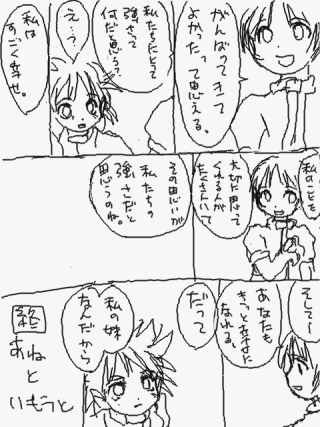 がんばってきて
よかったって思える。
私たちにとって
強さって
何だと思う?
え…?
私は
すごく幸せ。
私のことを
大切に思って
くれる人が
たくさんいて、
その思いが
私たちの
強さだと
思うのね。
そして〜
あなたも
きっと幸せに
なれる。
だって
私の妹
なんだから
終
あねと
いもうと